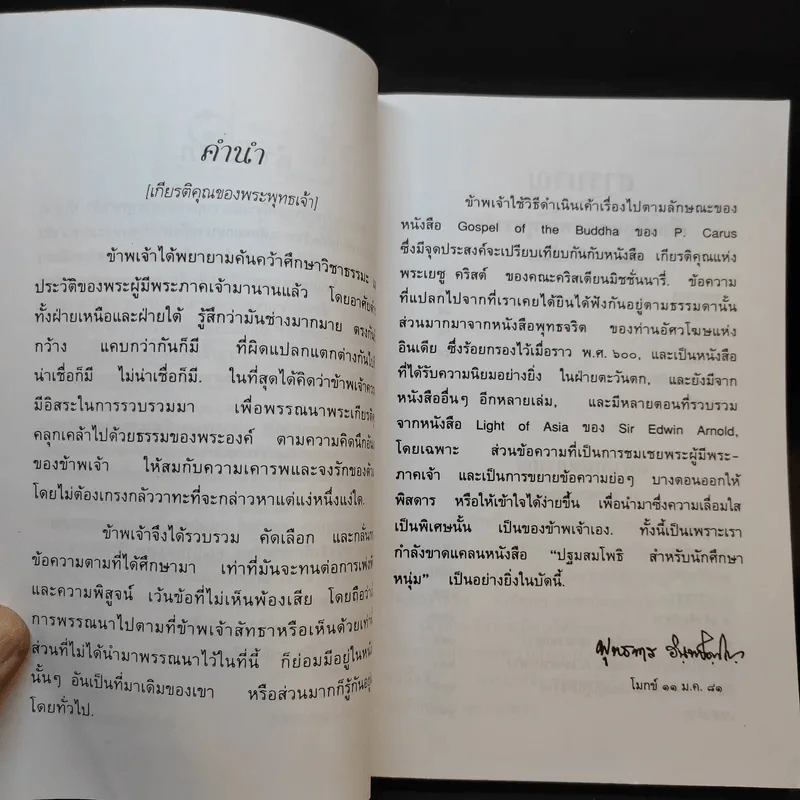 คำนำ
[เกียรติคุณของพระพุทธเจ้า]
ข้าพเจ้าได้พยายามค้นคว้าศึกษาวิชาธรรมะ
ประวัติของพระผู้มีพระภาคเจ้ามานานแล้ว โดยอาศัย
ทั้งฝ่ายเหนือและฝ่ายใต้ รู้สึกว่ามันช่างมากมาย ตรงกัน
กว้าง แคบกว่ากันก็มี ที่ผิดแปลกแตกต่างกัน
น่าเชื่อก็มี ไม่น่าเชื่อก็มี. ในที่สุดได้คิดว่าข้าพเจ้า
มีอิสระในการรวบรวมมา เพื่อพรรณนาพระเกียรติ
คลุกเคล้าไปด้วยธรรมของพระองค์ ตามความคิดนึก
ของข้าพเจ้า ให้สมกับความเคารพและจงรักของ
โดยไม่ต้องเกรงกลัววาทะที่จะกล่าวหาแต่แง่หนึ่งแง่ใด.
ข้าพเจ้าจึงได้รวบรวม คัดเลือก และ
ข้อความตามที่ได้ศึกษามา เท่าที่มันจะทนต่อการ
และความพิสูจน์ เว้นข้อที่ไม่เห็นพ้องเสีย โดยถือว่า
การพรรณนาไปตามที่ข้าพเจ้าสัทธาหรือเห็นด้วย
ส่วนที่ไม่ได้นำมาพรรณนาไว้ในที่นี้ ก็ย่อมมีอยู่ใน
นั้นๆ อันเป็นที่มาเดิมของเขา หรือส่วนมากก็รู้กัน
โดยทั่วไป.
ข้าพเจ้าใช้วิธีดำเนินเค้าเรื่องไปตามลักษณะของ
หนังสือ Gospel of the Buddha ของ P. Carus
ซึ่งมีจุดประสงค์จะเปรียบเทียบกันกับหนังสือ เกียรติคุณแห่ง
พระเยซู คริสต์ ของคณะคริสเตียนมิชชั่นนารี. ข้อความ
ที่แปลกไปจากที่เราเคยได้ยินได้ฟังกันอยู่ตามธรรมดานั้น
ส่วนมากมาจากหนังสือพุทธจริต ของท่านอัศวโฆษแห่ง
อินเดีย ซึ่งร้อยกรองไว้เมื่อราว พ.ศ. ๖๐๐, และเป็นหนังสือ
ที่ได้รับความนิยมอย่างยิ่ง ในฝ่ายตะวันตก, และยังมีจาก
หนังสืออื่นๆ อีกหลายเล่ม, และมีหลายตอนที่รวบรวม
จากหนังสือ Light of Asia ของ Sir Edwin Arnold,
โดยเฉพาะ ส่วนข้อความที่เป็นการชมเชยพระผู้มีพระ-
ภาคเจ้า และเป็นการขยายข้อความย่อๆ บางตอนออกให้
พิสดาร หรือให้เข้าใจได้ง่ายขึ้น เพื่อนำมาซึ่งความเลื่อมใส
เป็นพิเศษนั้น เป็นของข้าพเจ้าเอง. ทั้งนี้เป็นเพราะเรา
กำลังขาดแคลนหนังสือ “ปฐมสมโพธิ สำหรับนักศึกษา
หนุ่ม” เป็นอย่างยิ่งในบัดนี้.
พุทธทาส อินทปัญโญ
โมกข์ ๑๑ ม.ค. ๘๑